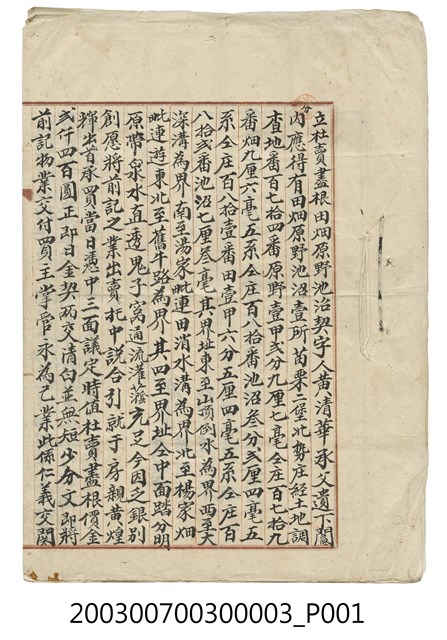 立杜賣盡根田畑原野池沼契字人黃清華承父遺下鬮
內應得有田畑原野池沼壹所苗栗二堡北勢庄経土地調
查地番百七十四番原野壹甲弍分九厘七毫仝庄百七十九
番畑九厘六毫五系仝庄百八拾番池沼叁分弍厘四毫五
系仝庄百八拾壹番田壹甲六分五厘四毫五系仝庄百
八拾弍番池沼七厘叁毫其界址東至山頂倒水為界西至大
深溝為界南至湯家毗連田消水溝為界北至楊家畑
毗連遊東北至舊牛路為界其四至界址仝中面踏分明
原帶泉水直透鬼子窩通流灌蔭充足今因乏銀別
創愿將前記之業出賣托中說合引就于房親黃煌
輝出首承買當日憑中三面議定時值杜賣盡根價金
弍仟四百圓正即日金契両交清白並無短少分文即將
前記物業交付買主掌管永為己業此係仁義交關
200300700300003_P001